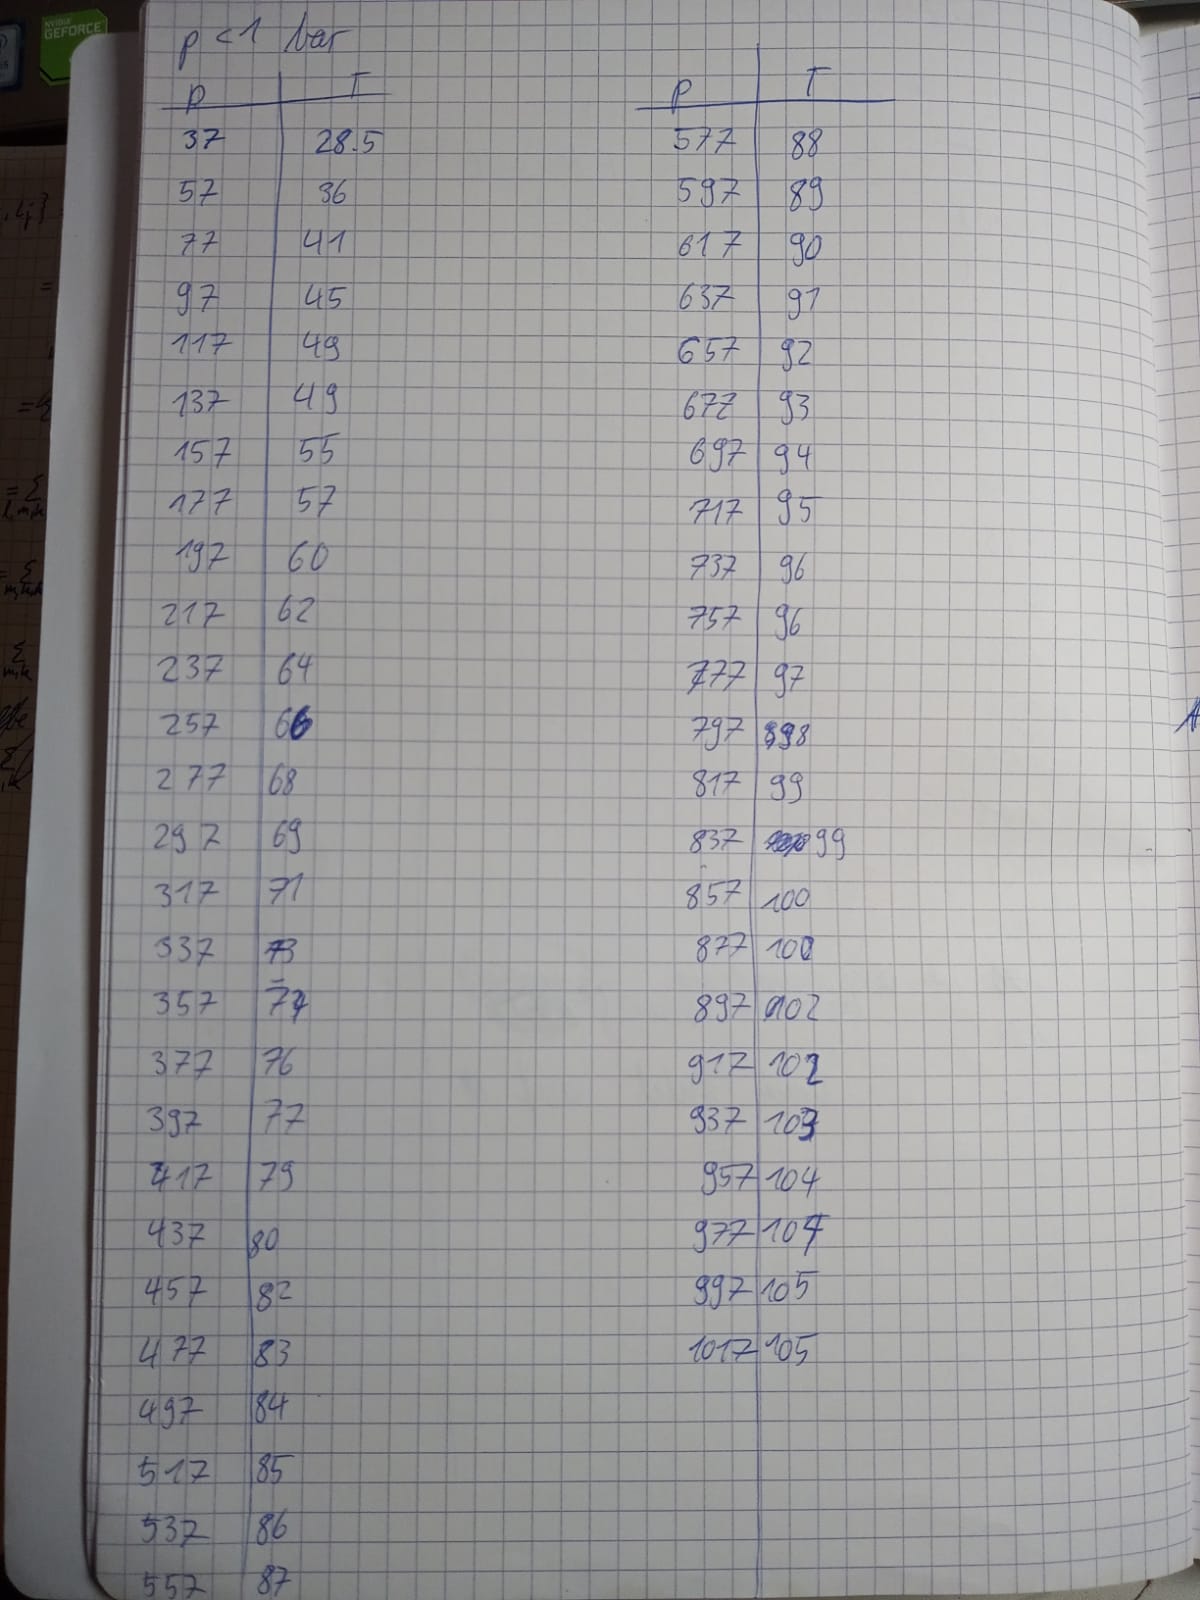 NVIDIA
GEFORCE
p < 1 bar
p T
37 28.5
57 36
77 41
97 45
117 49
137 49
157 55
177 57
197 60
217 62
237 64
257 66
277 68
297 69
317 71
337 73
357 74
377 76
397 77
417 79
437 80
457 82
477 83
497 84
517 85
537 86
557 87
p T
577 88
597 89
617 90
637 91
657 92
677 93
697 94
717 95
737 96
757 96
777 97
797 98
817 99
837 99
857 100
877 100
897 102
917 102
937 103
957 104
977 104
997 105
1017 105